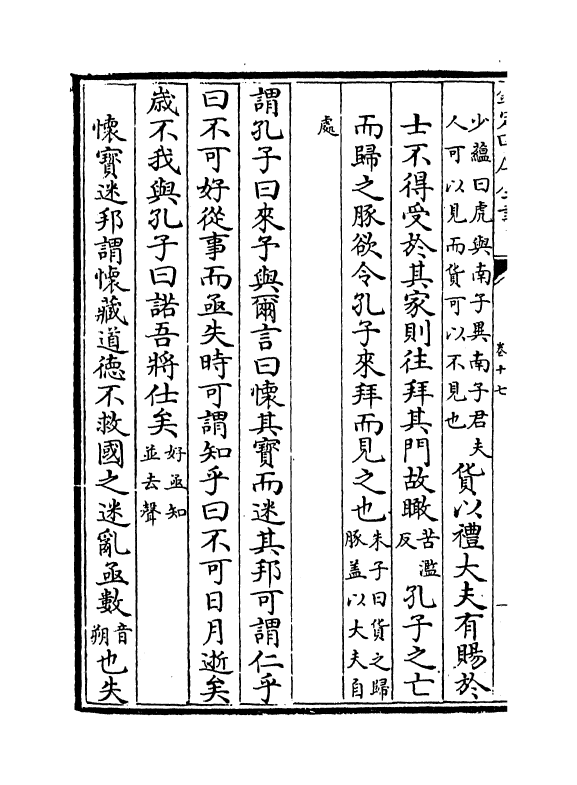 卷十七
一
少蘊曰虎與南子異南子君夫
人可以見而貨可以不見也
貨以禮大夫有賜於
士不得受於其家則往拜其門故瞰
苦濫
反
孔子之亡
而歸之豚欲令孔子來拜而見之也
朱子曰貨之歸
豚盖以大夫自
處
謂孔子曰來予與爾言曰懷其寳而迷其邦可謂仁乎
曰不可好從事而亟失時可謂知乎曰不可日月逝矣
歳不我與孔子曰諾吾將仕矣
好亟知
並去聲
懷寳迷邦謂懷藏道徳不救國之迷亂亟數
音
朔
也失